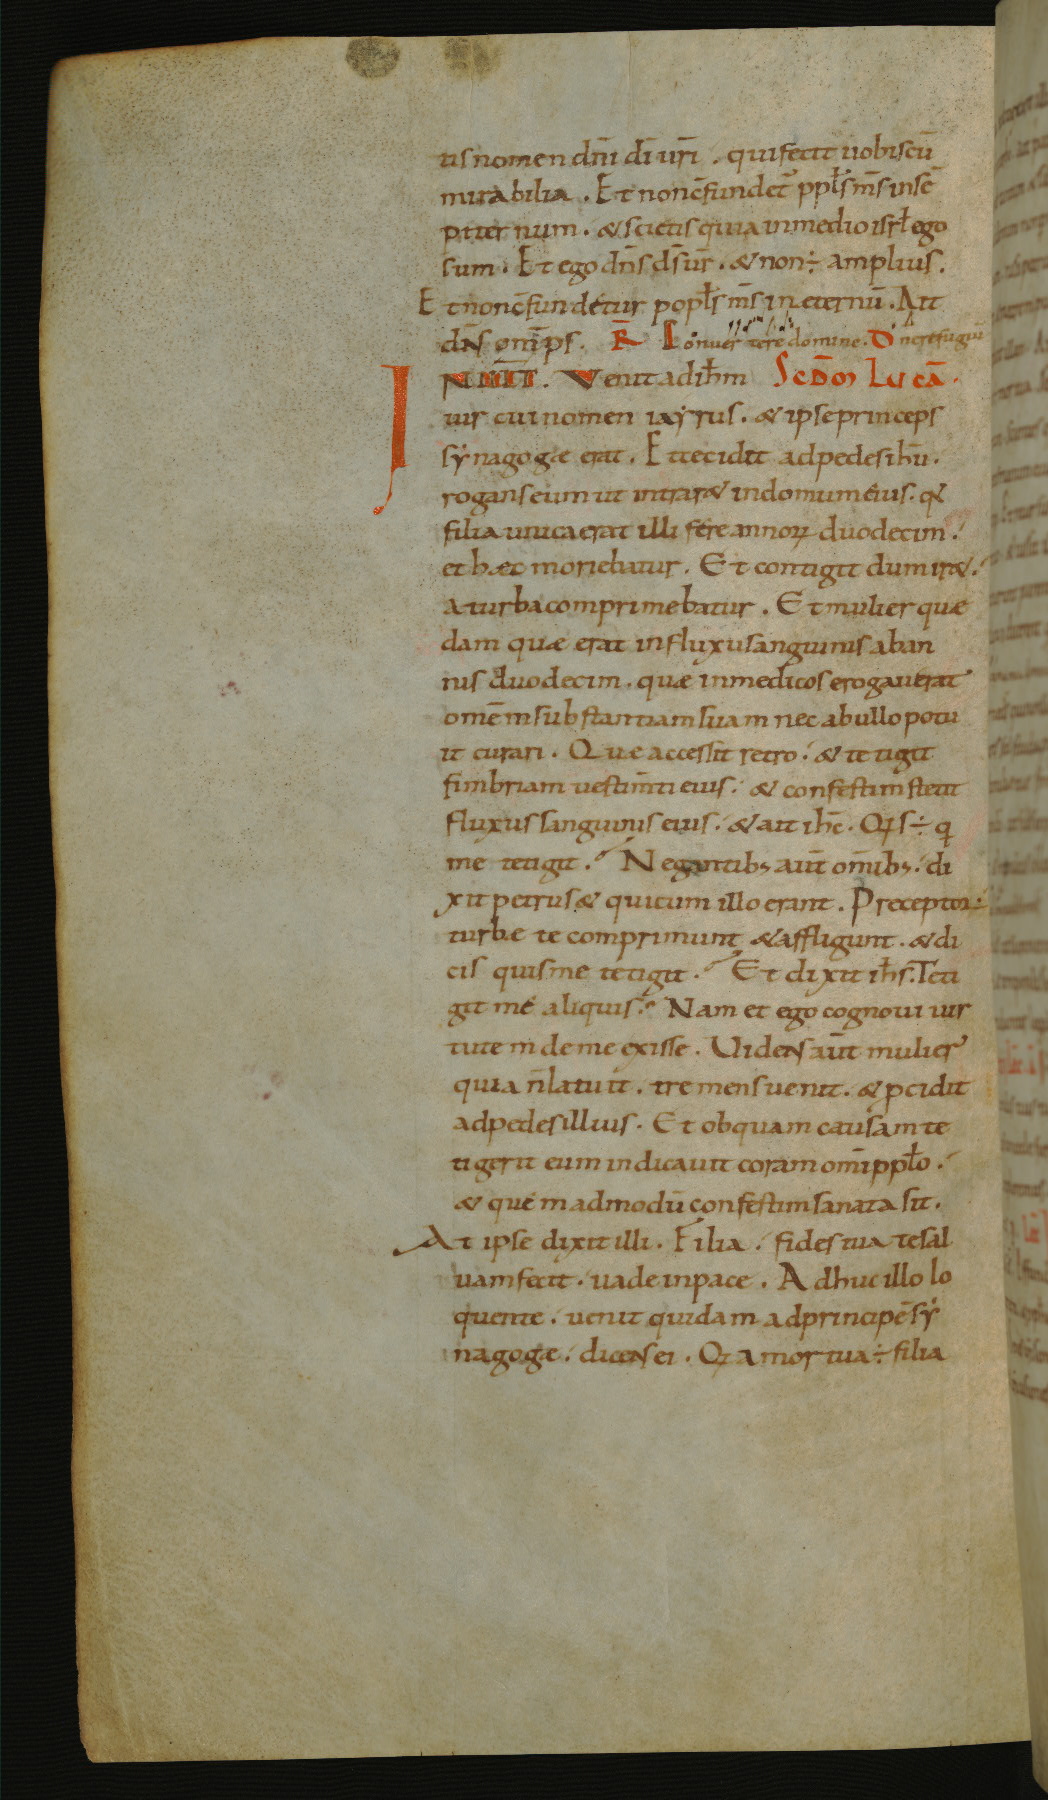 tis nomen dn̄i dī ur̄i . qui fecit uobiscū
mirabilia . Et non c̄fundet̄ ppl̄s m̄s in sē
piternum . & scietis quia in medio isrl̄ ego
sum . Et ego dn̄s ds̄ ur̄ . & non ÷ amplius .
Et non c̄fundetur popl̄s m̄s in eternū . Ait
dn̄s om̄ps . R̄ Conuertere domine . D̄ne refugiū
IN ILL̄ T̄ . Venit ad ih̄m Scd̄m Lucā .
uir cui nomen iaẏrus . & ipse princeps
sẏnagogæ erat . Et cecidit ad pedes ih̄u .
rogans eum ut intrar& in domum eius . qđ
filia unica erat illi fere annoꝝ duodecim .
et hæc moriebatur . Et contigit dum ir& .
a turba comprimebatur . Et mulier quæ
dam quæ erat in fluxu sanguinis ab an
nis duodecim . quæ in medicos erogauerat
omēm substantiam suam nec ab ullo potu
it curari . Quæ accessit retro . & tetigit
fimbriam uestim̄ti eius . & confestim stetit
fluxus sanguinis eius . & ait ih̄c . Q̣is ÷ q
me tetigit . Negantibs aut̄ om̄ibs . di
xit petrus & qui cum illo erant . Preceptor .
turbæ te comprimunt & affligunt . & di
cis quis me tetigit . Et dixit ih̄s . Teti
git me aliquis . Nam et ego cognoui uir
tutem de me exisse . Uidens aut̄ mulier
quia n̄ latuit . tremens uenit . & pcidit
ad pedes illius . Et ob quam causam te
tigerit eum indicauit coram om̄i ppl̄o .
& quemadmodū confestim sanata sit .
At ipse dixit illi . Filia . fides tua te sal
uam fecit . uade in pace . Adhuc illo lo
quente . uenit quidam ad principē sẏ
nagogæ . dicens ei . Q̣a mortua ÷ filia